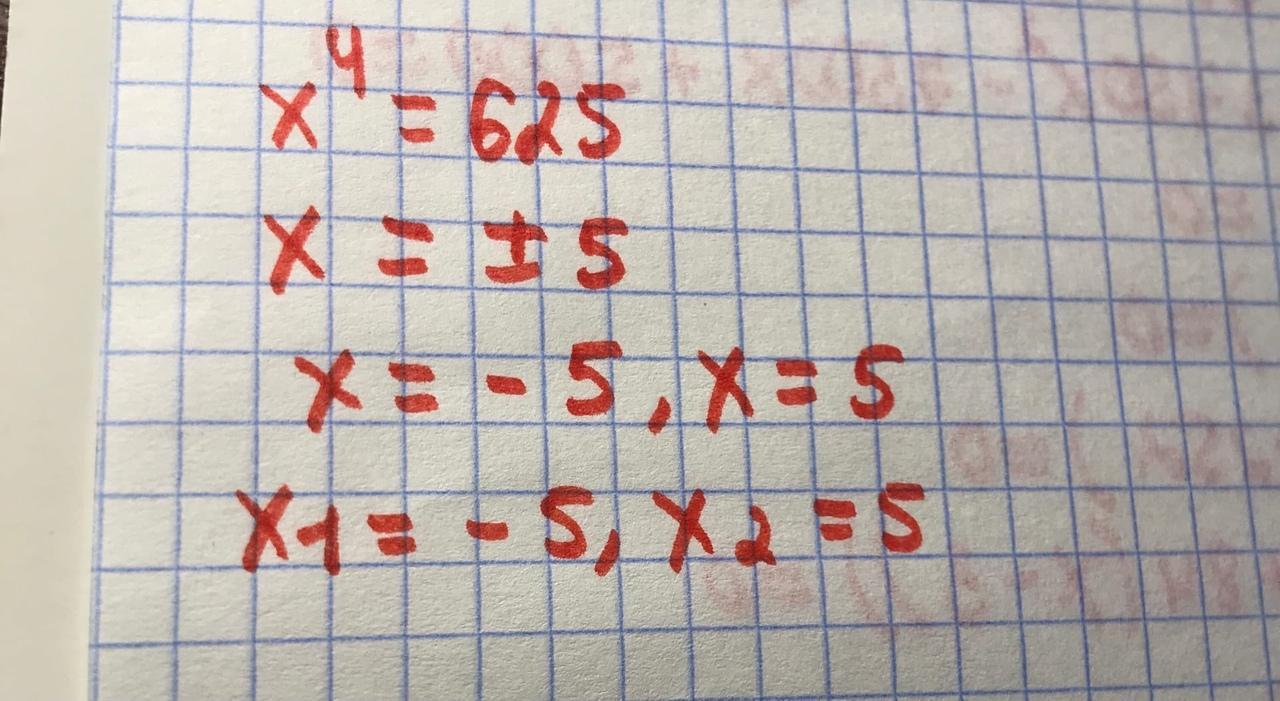 x⁴ = 625
x = ± 5
x = - 5, x = 5
x₁ = - 5, x₂ = 5